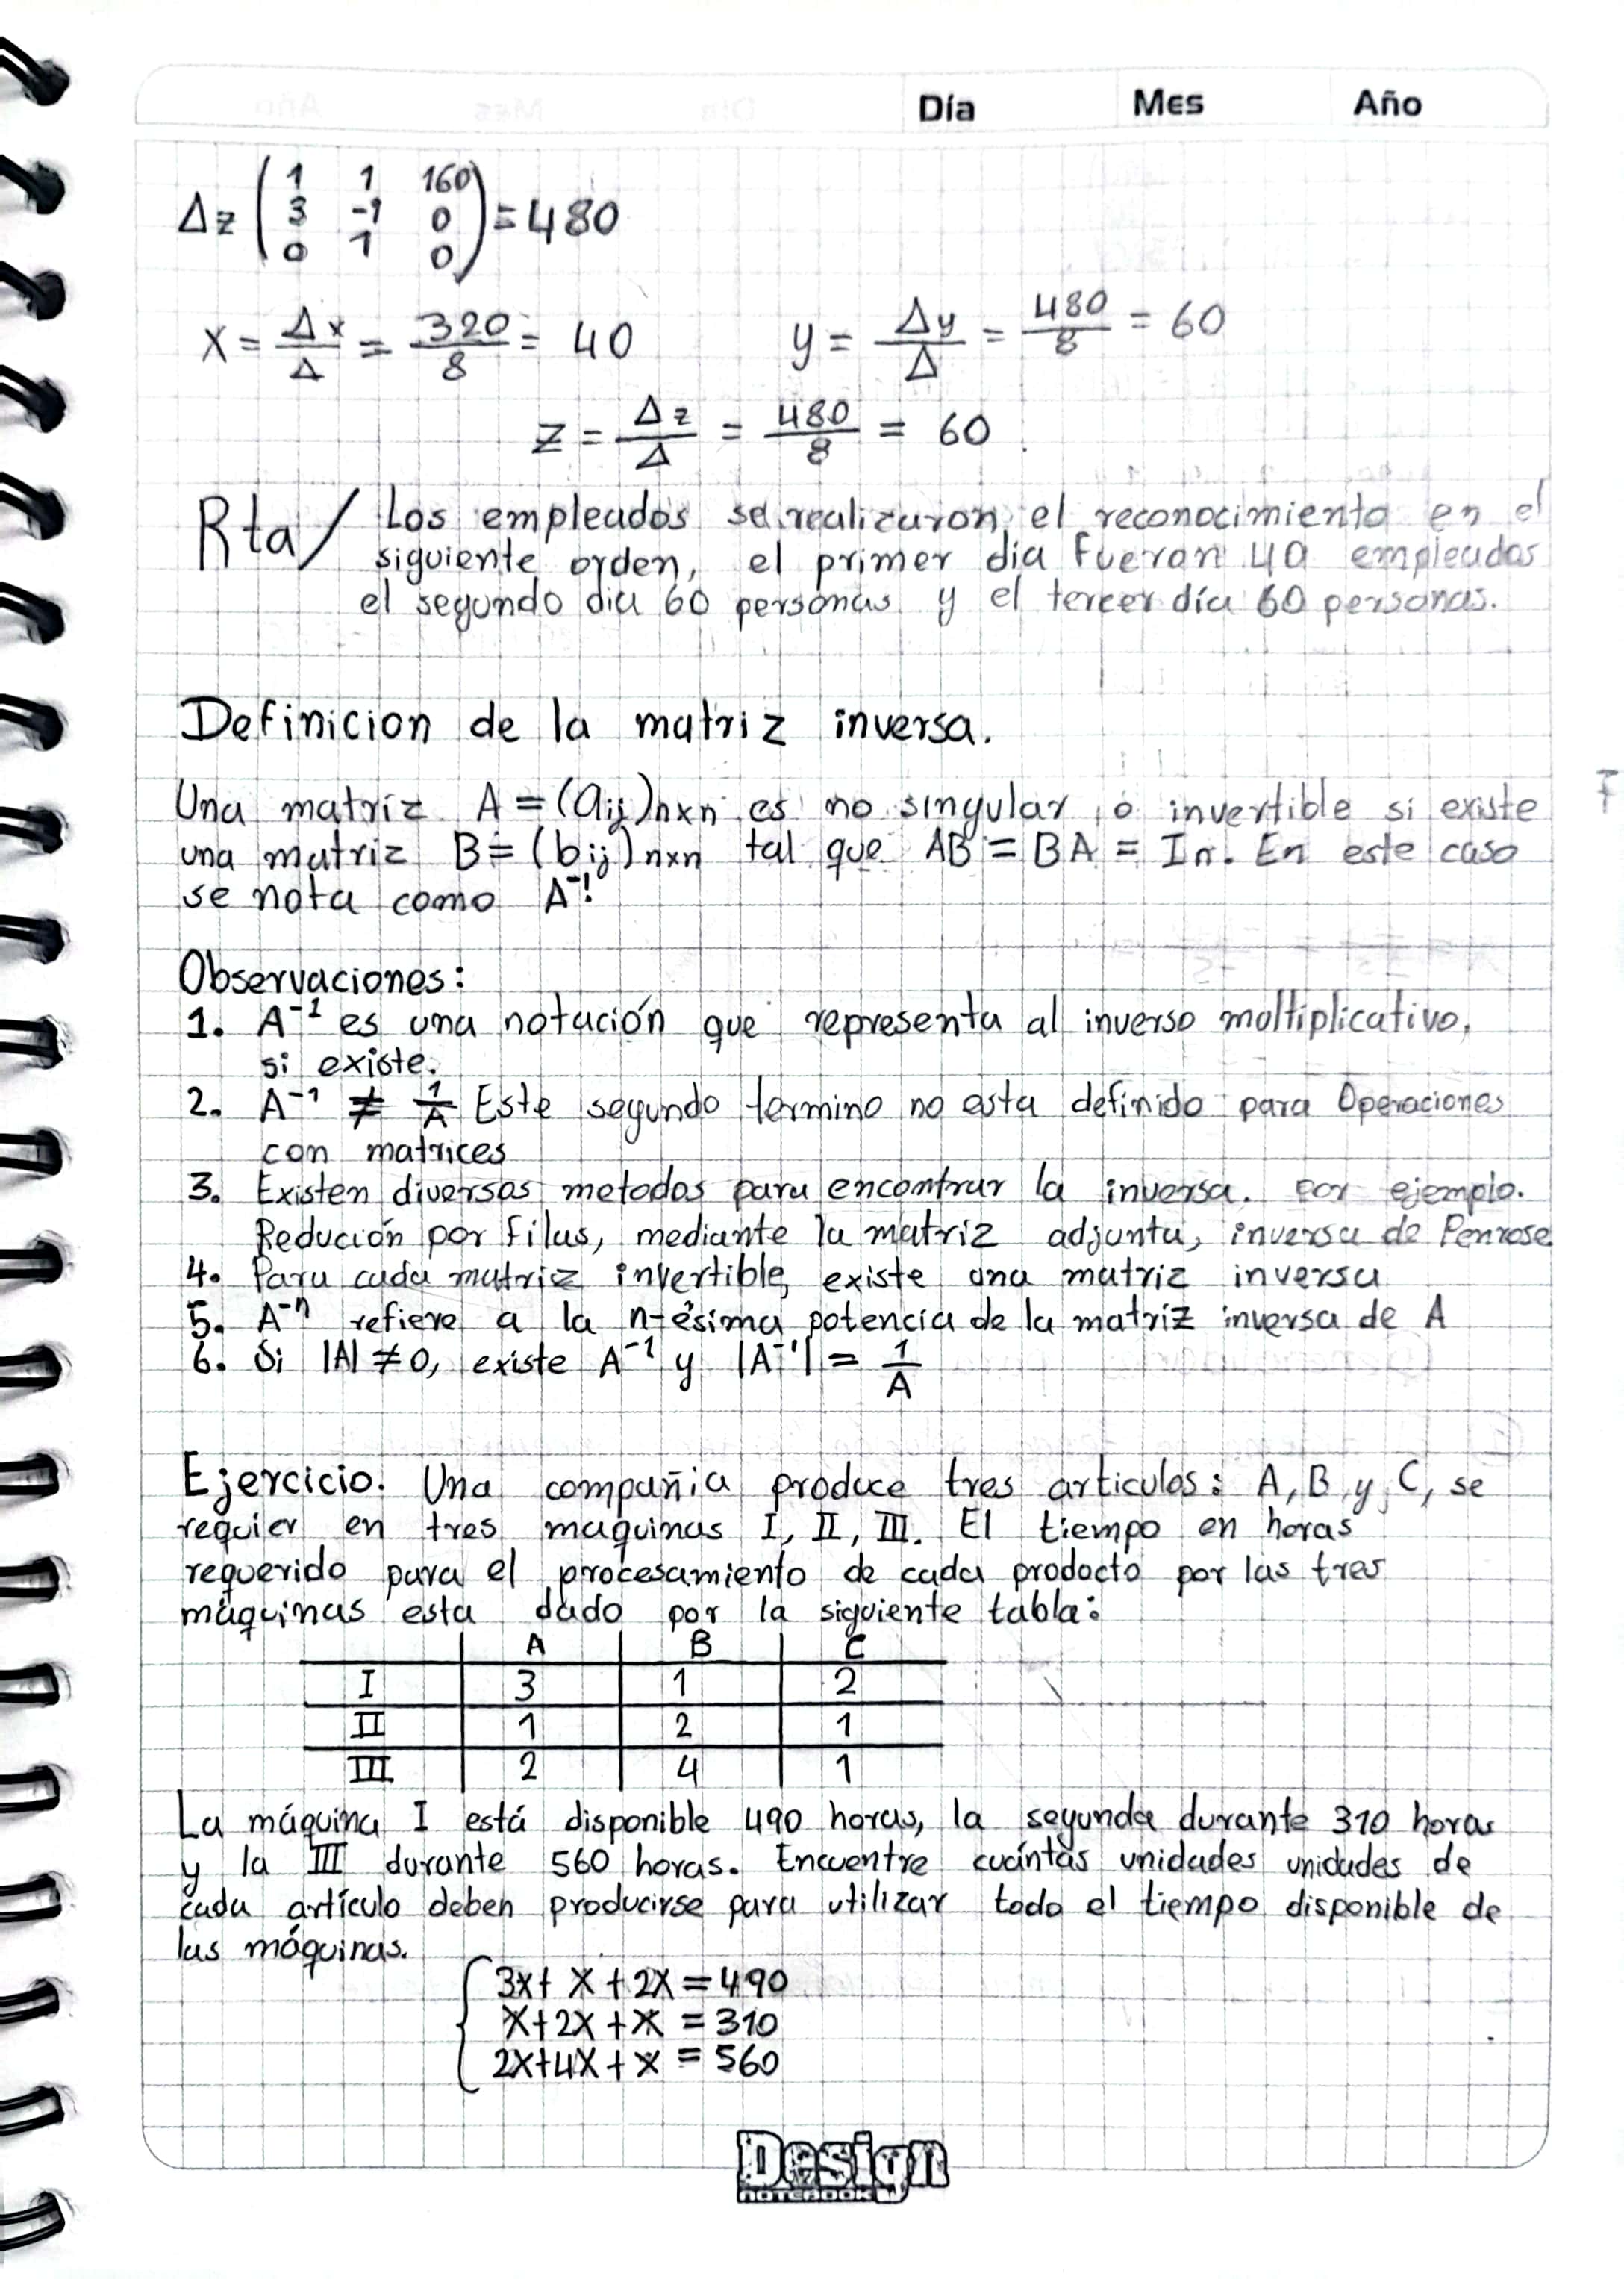 Día Mes Año
Δz (1 1 160
3 -1 0
0 1 0) = 480
X = Δx/Δ = 320/8 = 40 y = Δy/Δ = 480/8 = 60
Z = Δz/Δ = 480/8 = 60
Rta/ Los empleados se realizaron el reconocimiento en el
siguiente orden, el primer dia Fueron 40 empleados
el segundo dia 60 personas y el tercer día 60 personas.
Definicion de la matriz inversa.
Una matriz A = (aij)nxn es no singular o invertible si existe
una matriz B = (bij)nxn tal que AB = BA = In. En este caso
se nota como A⁻¹
Observaciones:
1. A⁻¹ es una notación que representa al inverso moltiplicativo,
si existe.
2. A⁻¹ ≠ 1/A Este segundo termino no esta definido para Operaciones
con matrices
3. Existen diversos metodos para encontrar la inversa. Por ejemplo.
Redución por filas, mediante la matriz adjunta, inversa de Penrose.
4. Para cada matriz invertible, existe una matriz inversa
5. A⁻ⁿ refiere a la n-ésima potencia de la matriz inversa de A
6. Si |A| ≠ 0, existe A⁻¹ y |A⁻¹| = 1/A
Ejercicio. Una compañia produce tres articulos: A, B y C, se
requier en tres maquinas I, II, III. El tiempo en horas
requerido para el procesamiento de cada producto por las tres
máquinas esta dado por la siguiente tabla:
A B C
I 3 1 2
II 1 2 1
III 2 4 1
La máquina I está disponible 490 horas, la segunda durante 310 horas
y la III durante 560 horas. Encuentre cuántas unidades unidades de
cada artículo deben producirse para utilizar todo el tiempo disponible de
las máquinas.
3x + x + 2x = 490
x + 2x + x = 310
2x + 4x + x = 560
Design
NOTEBOOK